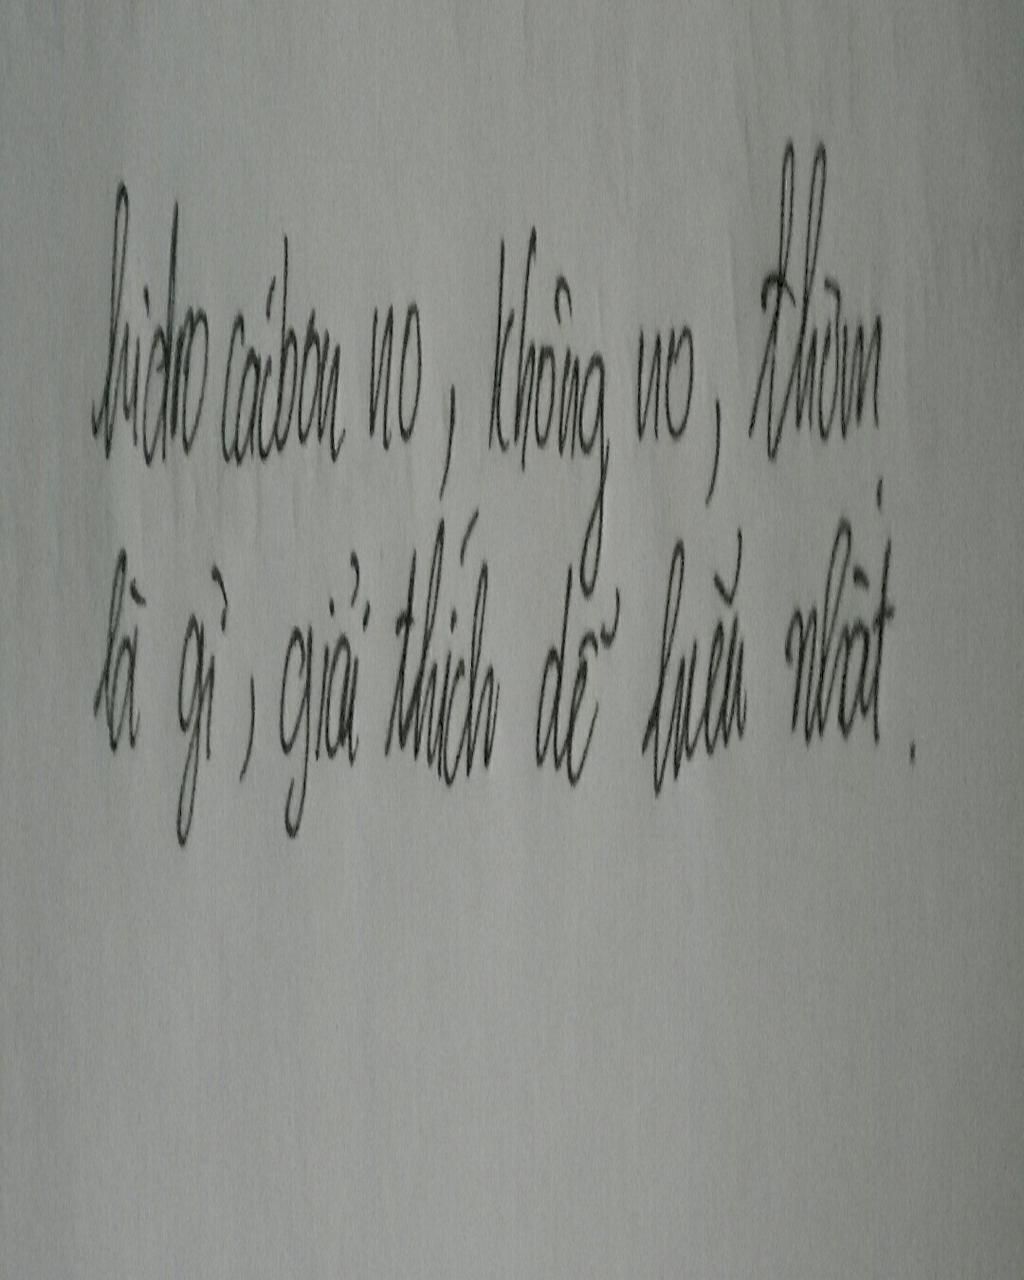 hidro cácbon no, không no, thơm
là gì, giải thích dễ hiểu nhất.